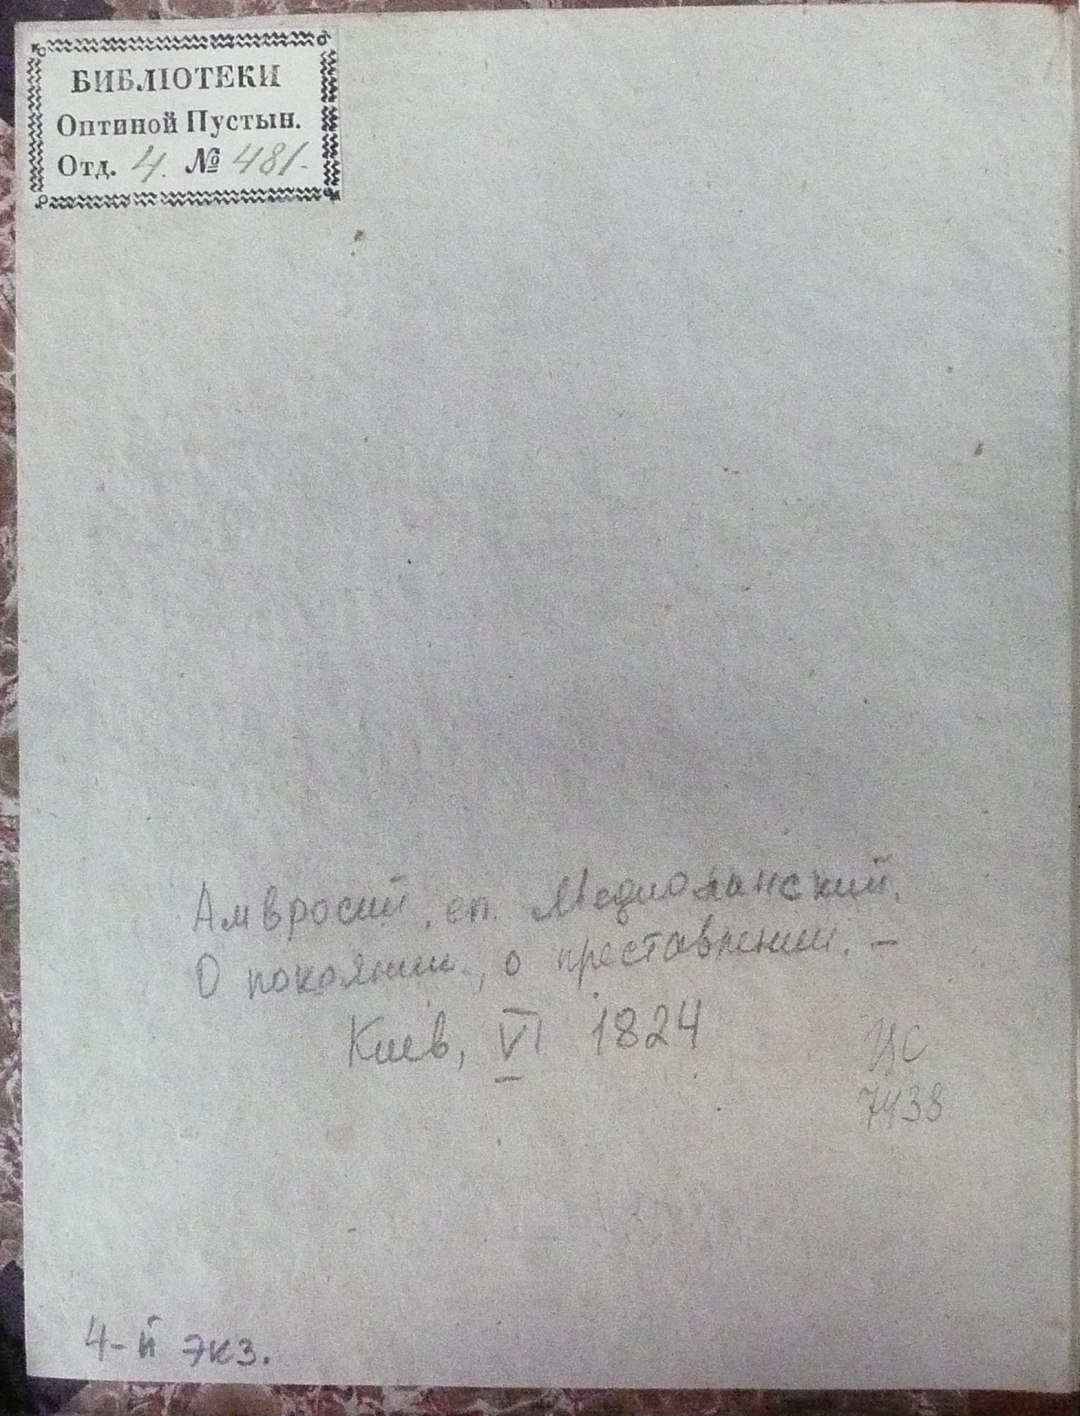 БИБЛІОТЕКИ
Оптиной Пустын.
Отд. 4. № 481.
Амвросий, еп. Медиоланский.
О покаянии, о преставлении. –
Киев, VI 1824
ЦС
7438
4-й экз.